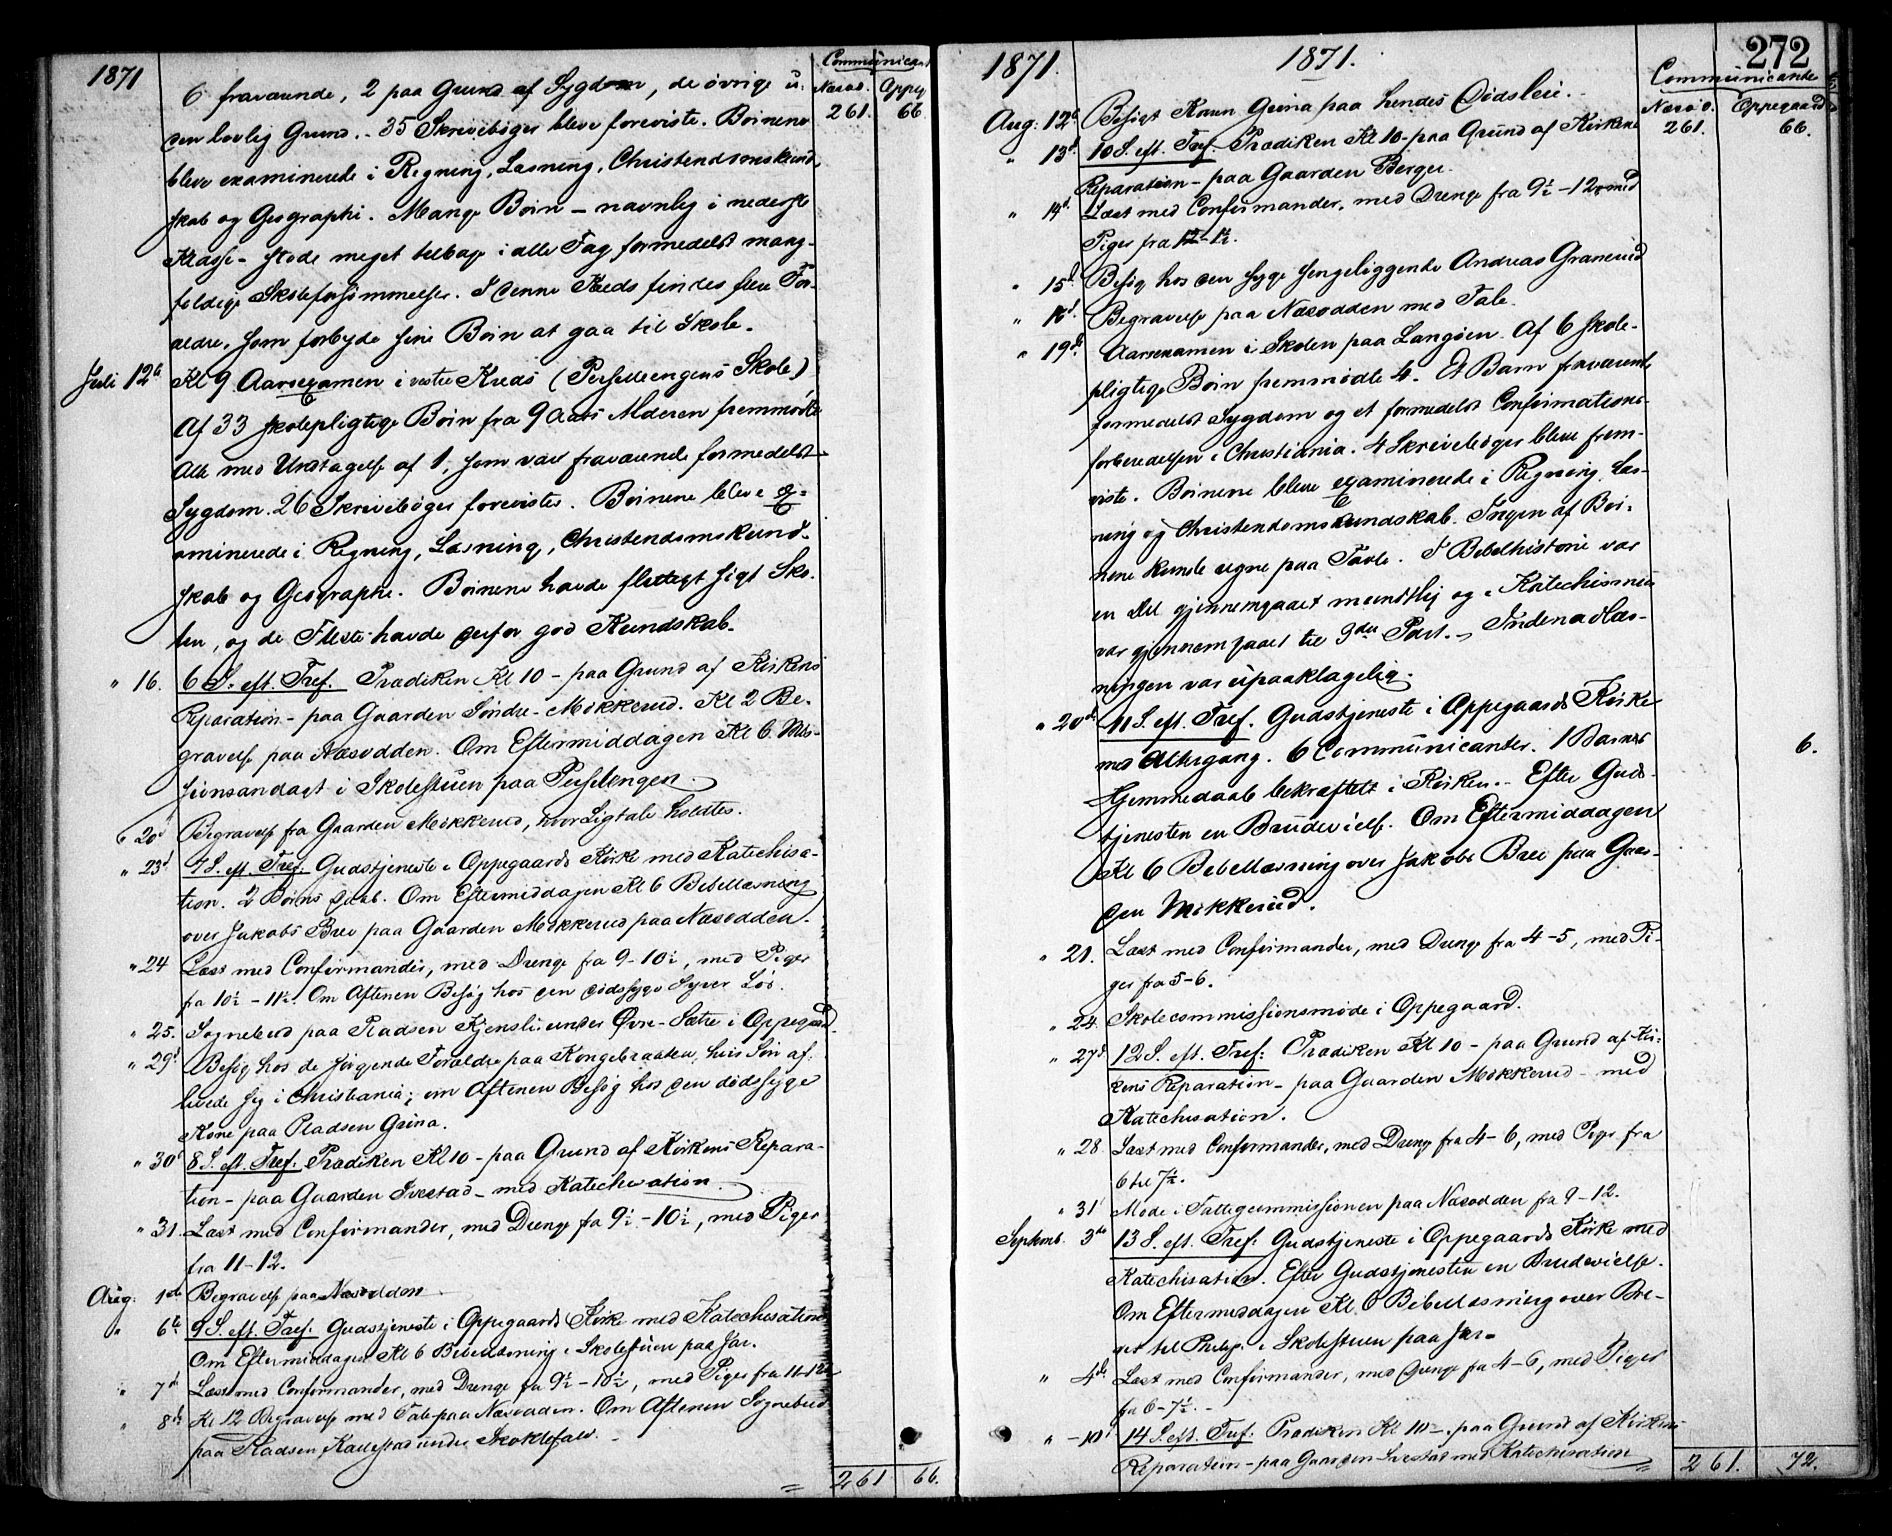 1871
Communicant
Næsod. Oppeg
261. 66.
6 fraværende, 2 paa Grund af Sygdom, de øvrige u-
den lovlig Grund. - 35 Skrivebøger bleve foreviste. Børnene
bleve examinerede i Regning, Læsning, Christendomskund-
skab og Geographi. Mange Børn - navnlig i nederste
Klasse - stode meget tilbage i alle Fag formedelst mang-
foldige Skoleforsømmelser. I denne Kreds findes flere For-
ældre, som forbyde sine Børn at gaa til Skole.
Juli 12te Kl 9 Aarsexamen i vestre Kreds (Persteengens Skole)
Af 33 skolepligtige Børn fra 9 Aars Alderen fremmødte
Alle med Undtagelse af 1, som var fraværende formedelst
Sygdom. 26 Skrivebøger forevistes. Børnene bleve ex-
aminerede i Regning, Læsning, Christendomskund-
skab og Geographi. Børnene havde flittigt søgt Sko-
len, og de Fleste havde derfor god Kundskab.
" 16. 6 S. eft. Tref. Prædiken Kl 10 - paa Grund af Kirkens
Reparation - paa Gaarden Søndre-Mokkerud. Kl 2 Be-
gravelse paa Næsodden. Om Eftermiddagen Kl 6 Mis-
sionsandagt i Skolestuen paa Persteengen.
" 20d Begravelse fra Gaarden Mokkerud, hvor Ligtale holdtes.
" 23d 7 S. eft. Tref. Gudstjeneste i Oppegaards Kirke med Katechisa-
tion. 2 Børns Daab. Om Eftermiddagen Kl 6 Bibellæsning
over Jakobs Brev paa Gaarden Mokkerud paa Næsodden.
" 24 Læst med Confirmander, med Drenge fra 9-10½, med Piger
fra 10½-11½. Om Aftenen Besøg hos den dødssyge Syver
" 25. Sognebud paa Pladsen Kjensli under Øvre-Sætre i Oppegaard.
" 29d Besøg hos de sørgende Forældre paa Kongebraaten, hvis Søn af-
livede sig i Christiania; om Aftenen Besøg hos den dødssyge
Kone paa Pladsen Grina.
" 30d 8 S. eft. Tref. Prædiken Kl 10 - paa Grund af Kirkens Repara-
tion - paa Gaarden Svestad - med Katechisation.
" 31. Læst med Confirmander, med Drenge fra 9½-10½, med Piger
fra 11-12.
Aug. 1ste Begravelse paa Næsodden
" 6te 9 S. eft. Tref. Gudstjeneste i Oppegaards Kirke med Katechisation
Om Eftermiddagen Kl 6 Bibellæsning i Skolestuen paa Jær.
" 7de Læst med Confirmander, med Drenge fra 9½-10½, med Piger fra 11-12½
" 8de Kl 12 Begravelse med Tale paa Næsodden. Om Aftenen Sognebud
paa Pladsen under Skoklefald.
261 66.
272
1871. 1871.
Communicante
Næsod. Oppegaard
261. 66.
Aug. 12te Besøgt Karen Grina paa hendes Dødsleie.
" 13d. 10 S. eft. Tref. Prædiken Kl 10 - paa Grund af Kirkens
Reparation - paa Gaarden Berger.
" 14d. Læst med Confirmander, med Drenge fra 9½-12, med
Piger fra 12-1½.
" 15d. Besøg hos den syge sengeliggende Andreas Granerud
" 16d. Begravelse paa Næsodden med Tale.
" 19de. Aarsexamen i Skolen paa Langøen. Af 6 skole-
pligtige Børn fremmødte 4. Et Barn fraværende
formedelst Sygdom og et formedelst Confirmations-
forberedelsen i Christiania. 4 Skrivebøger bleve frem-
viste. Børnene bleve examinerede i Regning, Læs-
ning og Christendomskundskab. Ingen af Bør-
nene kunde regne paa Tavle. I Bibelhistorie var
en Del gjennemgaaet mundtlig og i Katechismen
var gjennemgaaet til 3die Part. - Indenadlæs-
ningen var upaaklagelig.
" 20d. 11 S. eft. Tref. Gudstjeneste i Oppegaards Kirke
med Altergang. 6 Communicanter. 1 Barns 6.
Hjemmedaab bekræftet i Kirken. - Efter Guds-
tjenesten en Brudevielse. Om Eftermiddagen
Kl 6 Bibellæsning over Jakobs Brev paa Gaar-
den Mokkerud.
" 21. Læst med Confirmander, med Drenge fra 4-5, med Pi-
ger fra 5-6.
" 24. Skolecommissionsmøde i Oppegaard.
" 27d 12 S. eft. Tref: Prædiken Kl 10 - paa Grund af Kir-
kens Reparation - paa Gaarden Mokkerud - med
Katechisation.
" 28 Læst med Confirmander, med Drenge fra 4-6, med Piger fra
6 til 7½.
" 31 Møde i Fattigcommissionen paa Næsodden fra 9-12.
Septemb. 3die 13 S. eft. Tref: Gudstjeneste i Oppegaards Kirke med
Katechisation. Efter Gudstjenesten en Brudevielse.
Om Eftermiddagen Kl. 6 Bibellæsning over Bre-
vet til Philip. i Skolestuen paa Jær.
" 4de Læst med Confirmander, med Drenge fra 4-6, med Piger
fra 6-7½.
" 10d 14 S. eft. Tref: Prædiken Kl 10 - paa Grund af Kirkens
Reparation - paa Gaarden Svestad med Katechisation
261. 72.